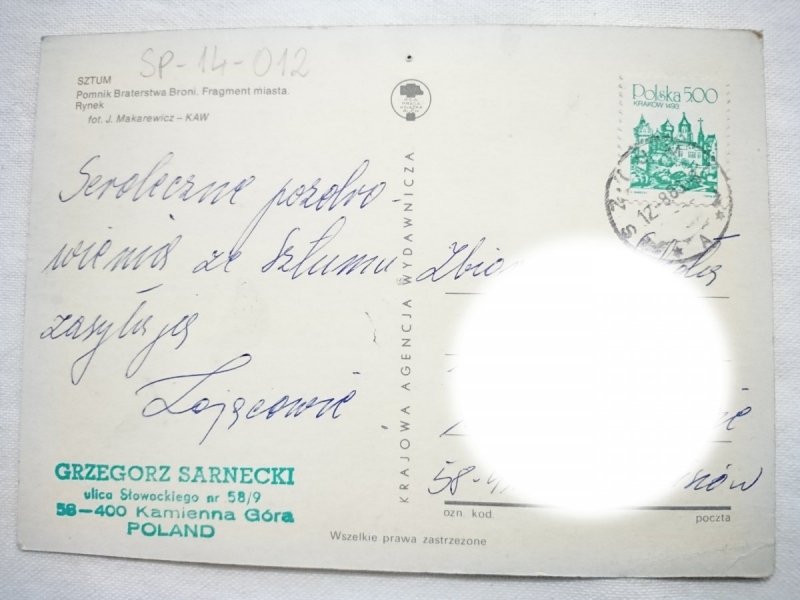 SP-14-012
SZTUM
Pomnik Braterstwa Broni. Fragment miasta.
Rynek
fot. J. Makarewicz – KAW
Polska 5.00
KRAKÓW 1493
Serdeczne pozdro
wienia ze Sztumu
zasyłają
Zającowie
KRAJOWA AGENCJA WYDAWNICZA
58-4
GRZEGORZ SARNECKI
ulica Słowackiego nr 58/9
58—400 Kamienna Góra
POLAND
ozn. kod.
poczta
Wszelkie prawa zastrzeżone